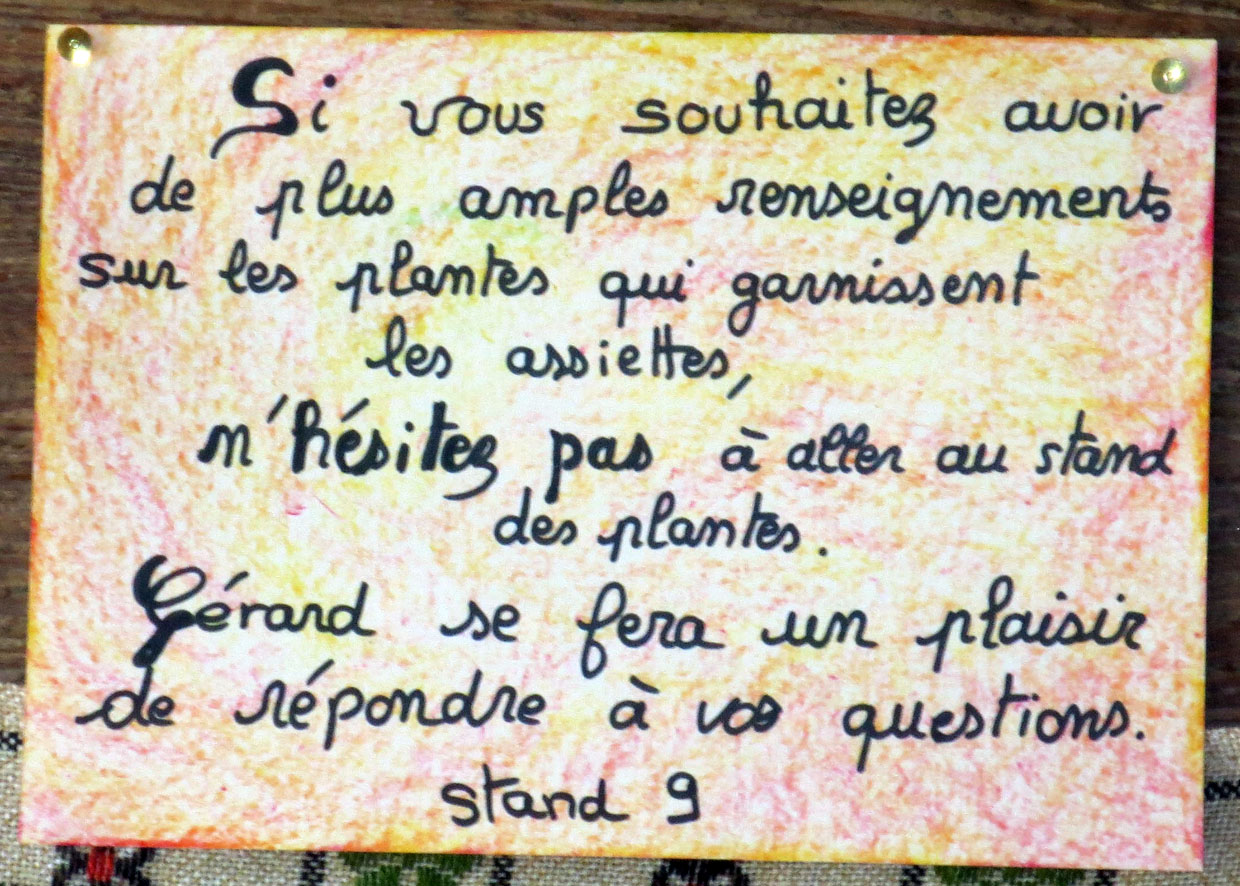 Si vous souhaitez avoir
de plus amples renseignements
sur les plantes qui garnissent
les assiettes,
n'hésitez pas à aller au stand
des plantes.
Gérard se fera un plaisir
de répondre à vos questions.
stand 9